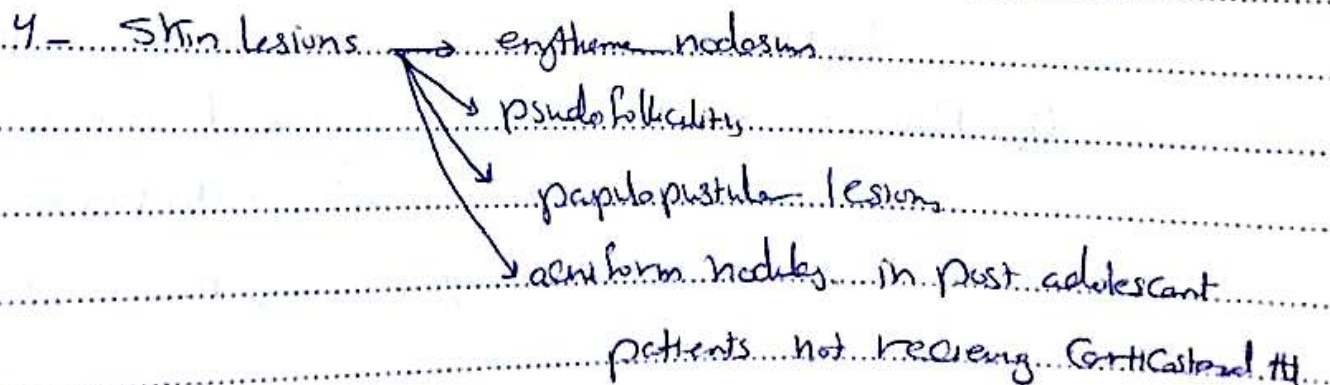 4- Skin lesions → erythema nodosum
→ psudofolliculitis
→ papulopustular lesions
→ acneform nodules in post adolescant
patients not recieving corticosteroid ttt